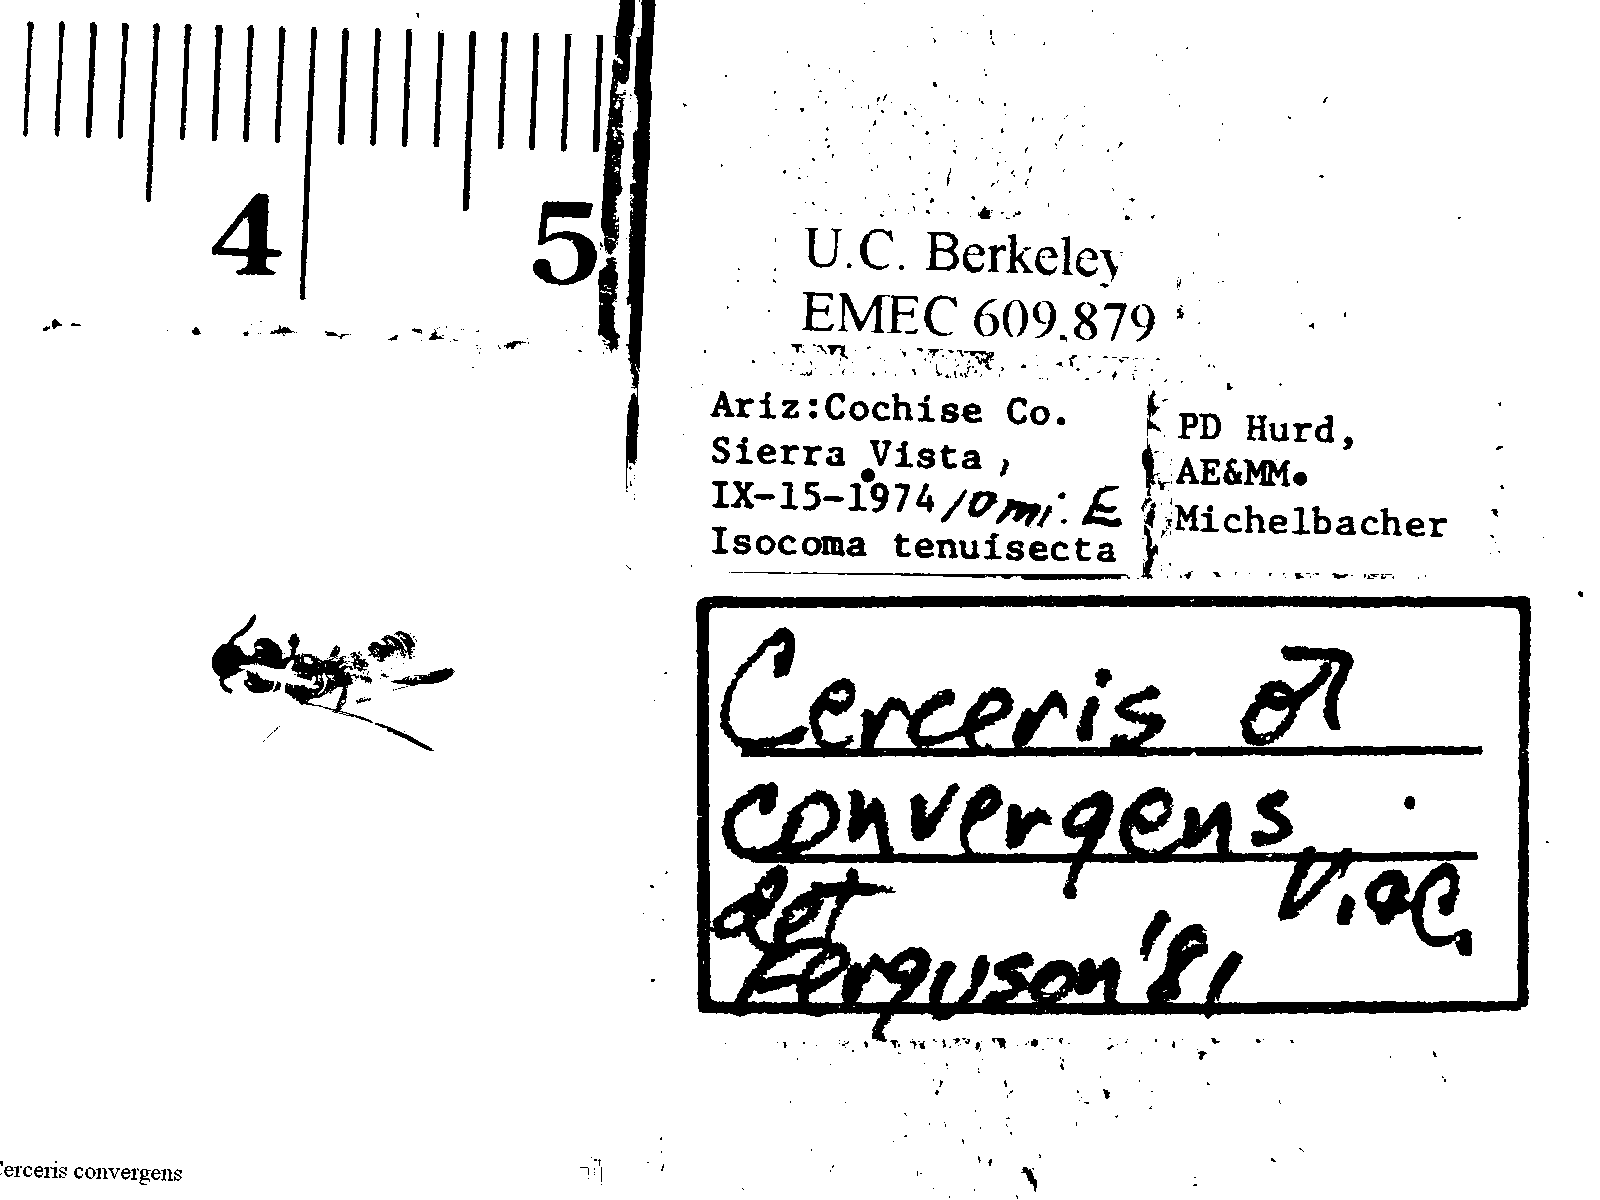 4 5
U.C. Berkeley
EMEC 609.879
Ariz:Cochise Co.
Sierra Vista,
IX-15-1974 10 mi. E
Isocoma tenuisecta
PD Hurd,
AE&MM.
Michelbacher
Cerceris ♂
convergens
V.&C.
det
Ferguson '81
Cerceris convergens